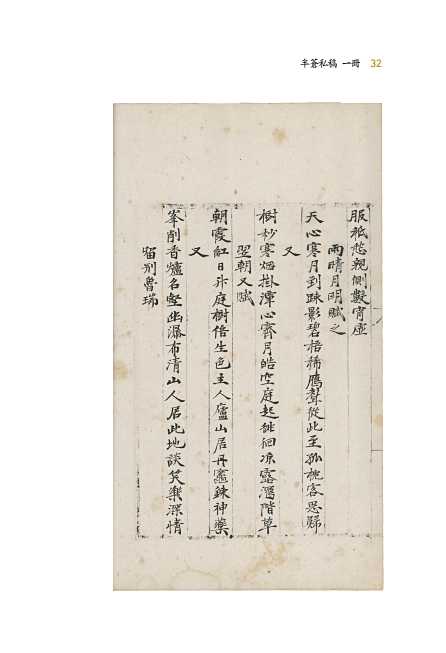 半蒼私稿 一冊 32
服祗愁親側數宵虛
雨晴月明賦之
天心寒月到踈影碧梧稀鴈聲從此至孤枕客思歸
又
樹秒寒烟掛潭心霽月皓空庭起徘徊凉露濕階草
翌朝又賦
朝霞紅日升庭樹倍生色主人廬山居丹竈鍊神藥
又
峯削香爐名壑幽瀑布清山人居此地談笑樂深情
留別曾瑞